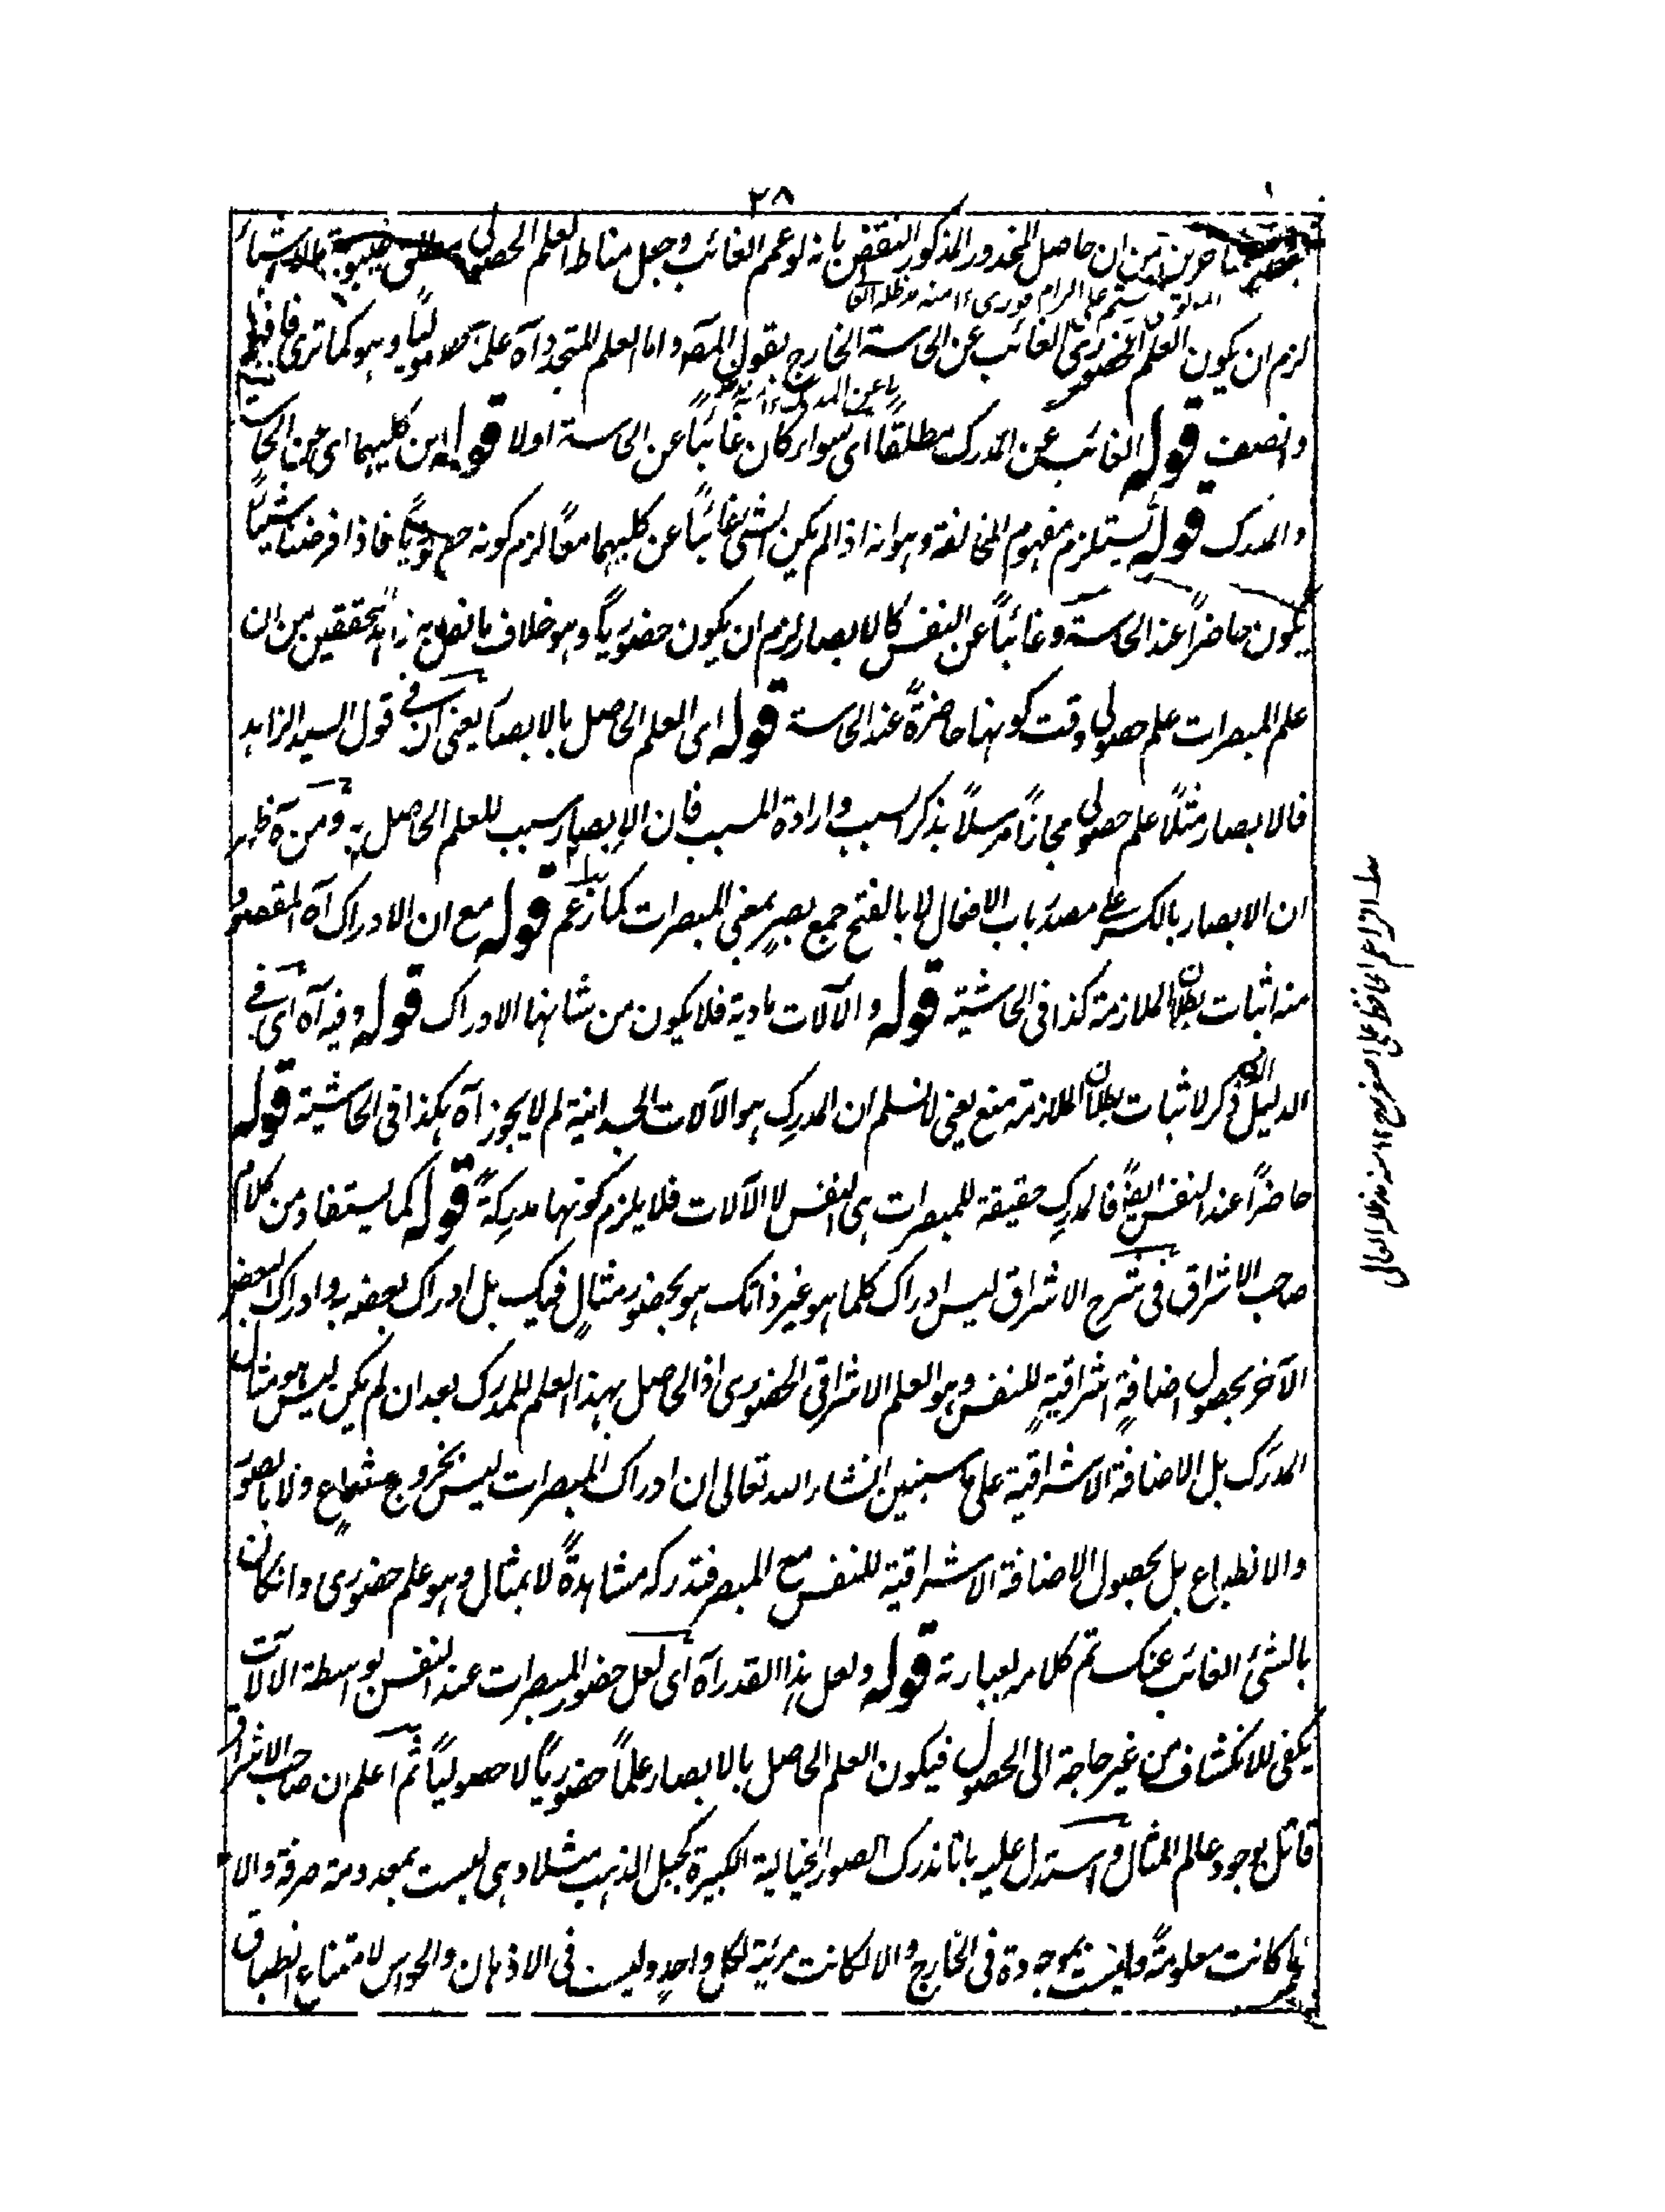 ٢٨
المتاخرين من ان حاصل المحذور المذكور النقض بانه لو عمم الغائب وجعل مناط العلم الحصولي مطلق غيبوبة الاشياء
المولوي رستم علي الرامفوري ١٢ منه مدظله العالي
لزم ان يكون العلم الحضوري الغائب عن الحاسة الخارج بقول المص واما العلم المتجدد آه علما حصوليًا وهو كما ترى فافهم
وانصف قوله الغائب عن المدرك مطلقًا اى سواء كان غائبًا عن الحاسة اولا قوله من كليهما اى من الحاسة
والمدرك قوله يستلزم مفهوم المخالفة وهو انه اذا لم يكن الشئ غائبًا عن كليهما معًا لزم كونه حضوريًا فاذا فرضنا شيئًا
يكون حاضرًا عند الحاسة وغائبًا عن النفس كالابصار لزم ان يكون حضوريًا وهو خلاف ما نص به زاهد المحققين من ان
علم المبصرات علم حصولي وقت كونها حاضرةً عند الحاسة قوله اى العلم الحاصل بالابصار يعنى ان في قول السيد الزاهد
فالابصار مثلًا علم حصولي مجازًا مرسلًا بذكر السبب وارادة المسبب فان الابصار سبب للعلم الحاصل به ومن ههنا ظهر
ان الابصار بالكسر على مصدر باب الافعال لا بالفتح جمع بصر بمعنى المبصرات كما زعم قوله مع ان الادراك آه المقصود
منه اثبات بطلان الملازمة كذا فى الحاشية قوله والآلات مادية فلا يكون من شانها الادراك قوله وفيه آه اى في
الدليل الذى ذكر لاثبات بطلان الملازمة منع يعنى لا نسلم ان المدرِك هو الآلات الجسدانية لم لا يجوز آه هكذا فى الحاشية قوله
حاضرًا عند النفس ايضًا فالمدرِك حقيقة للمبصرات هى النفس لا الآلات فلا يلزم كونها مدرِكةً قوله كما يستفاد من كلام
صاحب الاشراق فى شرح الاشراق ليس ادراك كلما هو غير ذاتك هو بحضور مثالٍ فيك بل ادراك بعضه به وادراك البعض
الآخر بحصول اضافةٍ اشراقيةٍ للنفس وهو العلم الاشراقى الحضورى اذ الحاصل بهذا العلم للمدرك بعد ان لم يكن ليس هو مثال
المدرَك بل الاضافة الاشراقية على ما سنبين انشاء الله تعالى ان ادراك المبصرات ليس بخروج شعاعٍ ولا بالصور
والانطباع بل بحصول الاضافة الاشراقية للنفس مع المبصر فتدركه مشاهدةً لا بمثال وهو علم حضورى وانكان
بالشئ الغائب عنك تم كلامه بعبارته قوله ولعل هذا القدر آه اى لعل حضور المبصرات عند النفس بواسطة الآلات
يكفى للانكشاف من غير حاجة الى الحصول فيكون العلم الحاصل بالابصار علمًا حضوريًا لا حصوليًا ثم اعلم ان صاحب الاشراق
قائل بوجود عالم المثال واستدل عليه بانا ندرك الصور الخيالية الكبيرة كجبل الذهب مثلا وهى ليست بمعدومة صرفة والا
ما كانت معلومةً وليست بموجودة فى الخارج والا لكانت مرئية لكل واحدٍ وليست فى الاذهان والحواس لامتناع انطباق